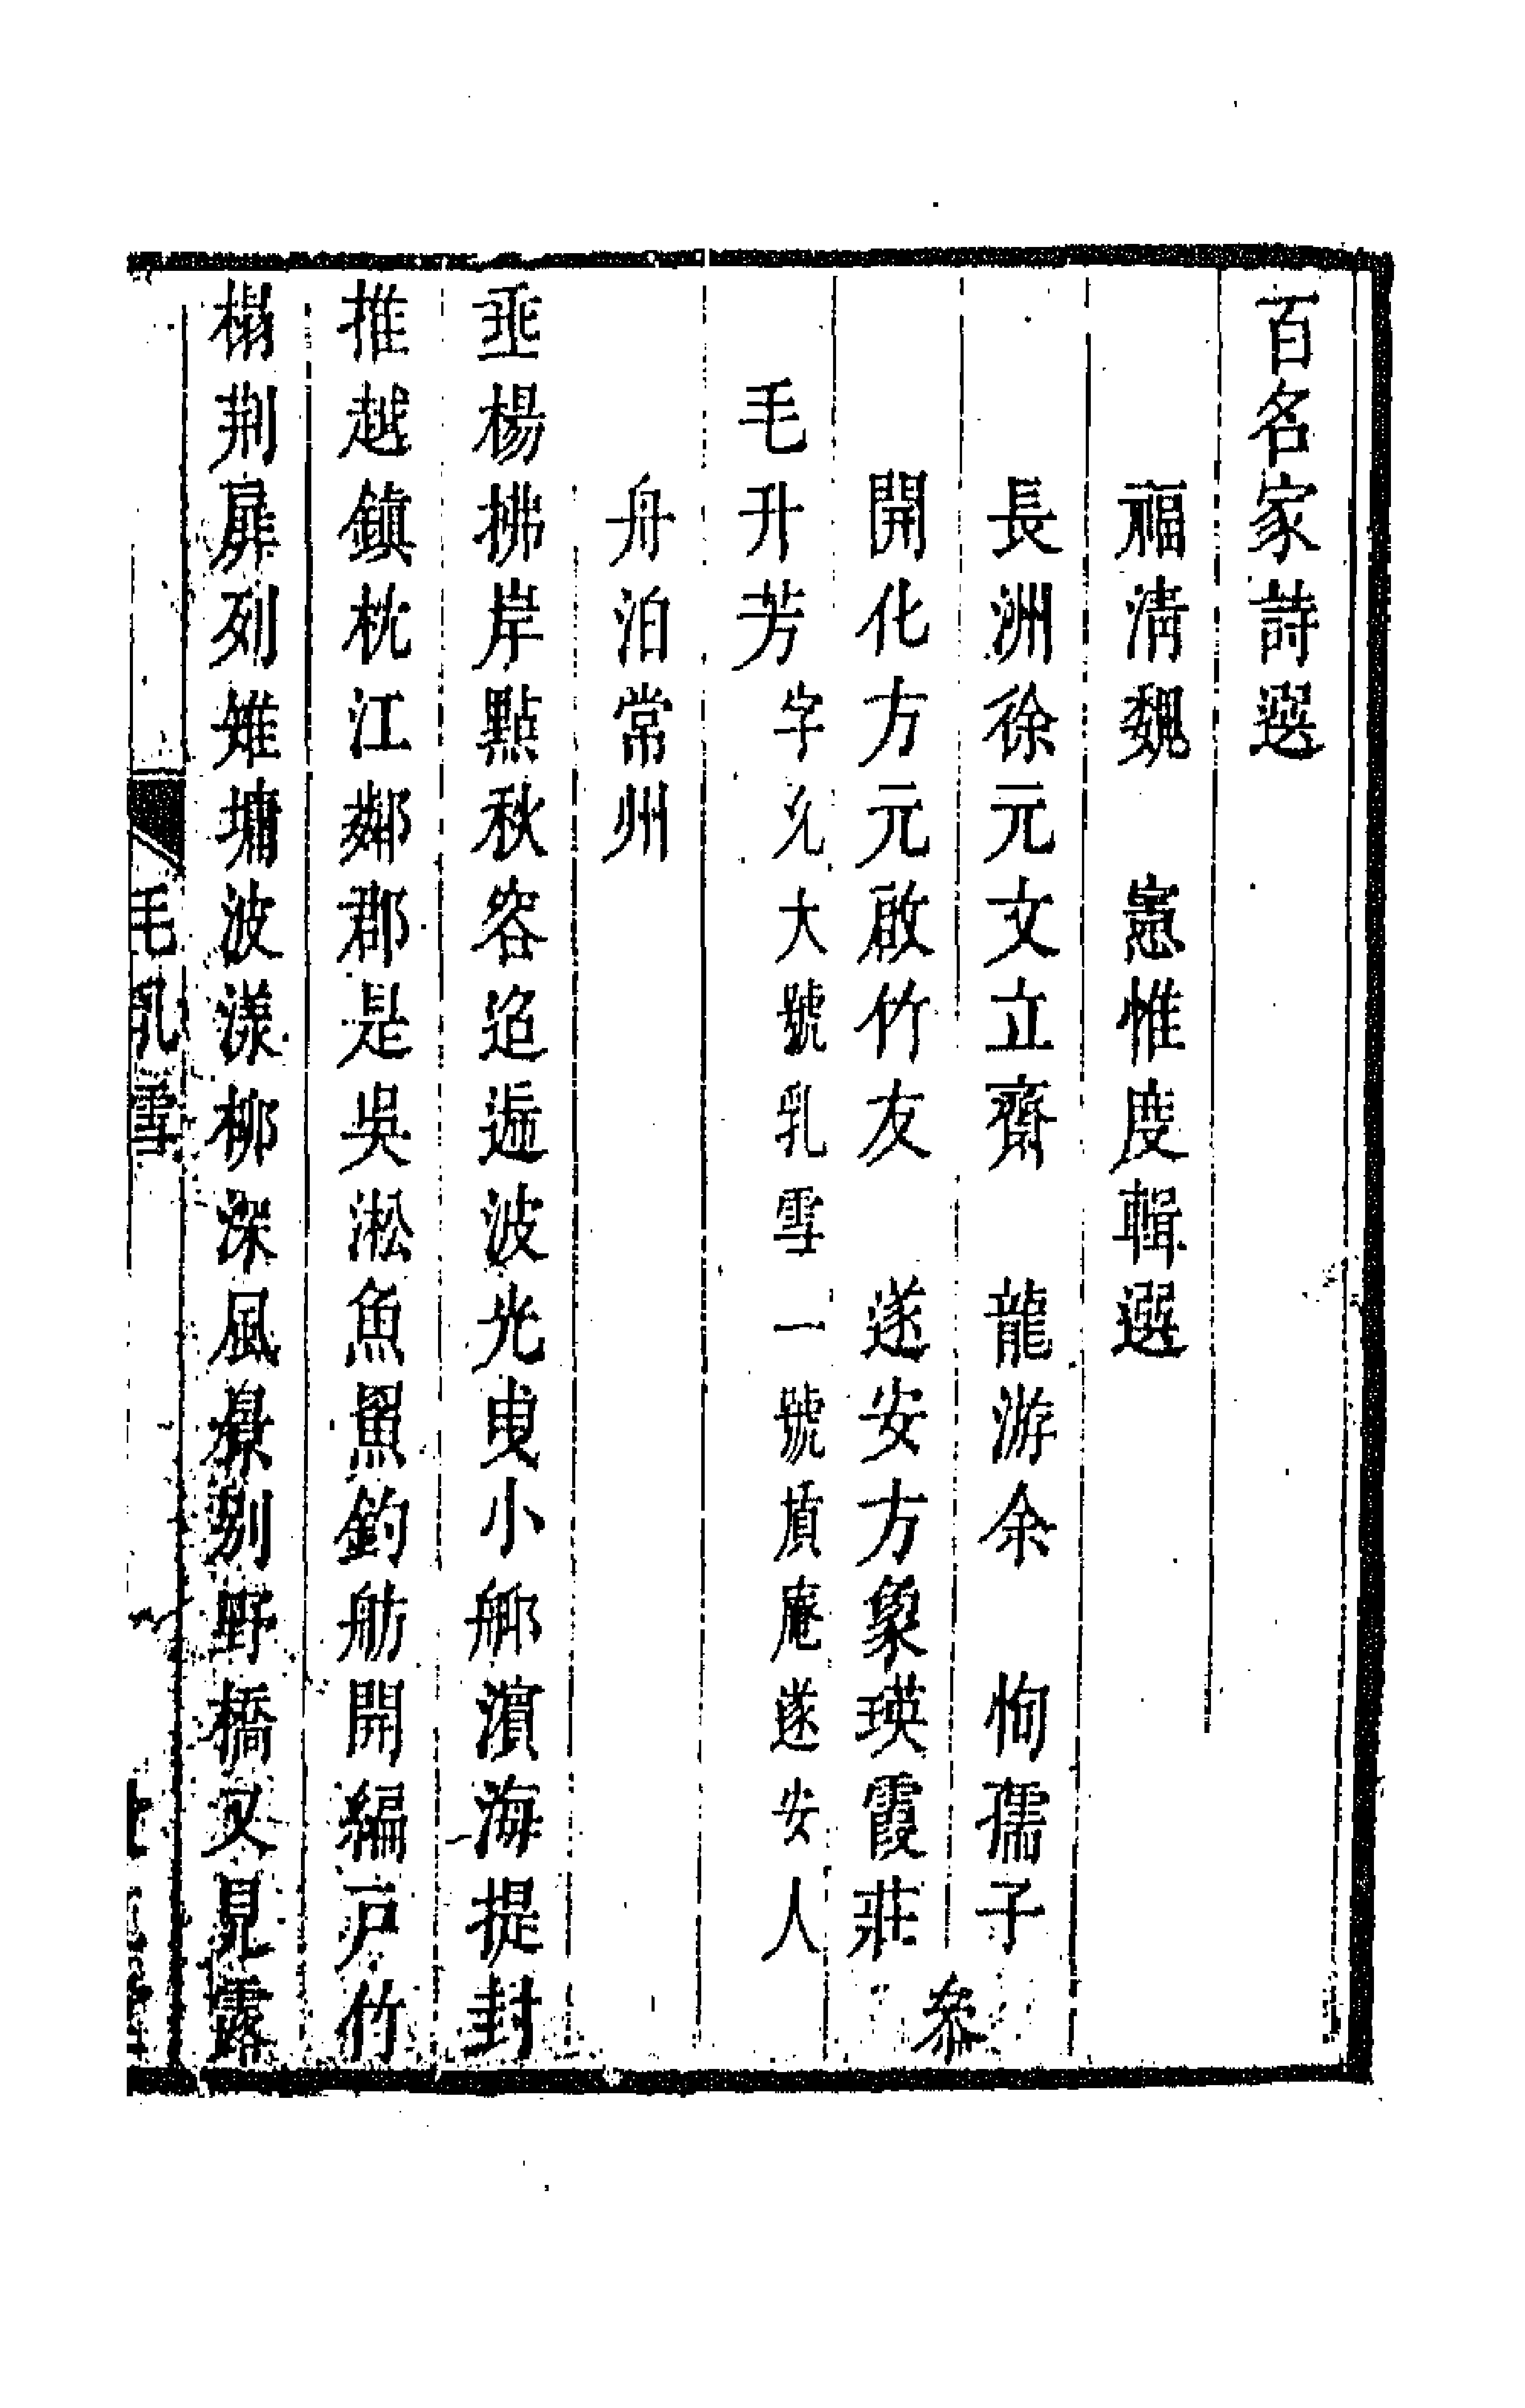 百名家詩選
福清魏　憲惟度輯選
長洲徐元文立齋　龍游余　恂孺子
開化方元啟竹友　遂安方象瑛霞莊
參
毛升芳字允大號乳雪一號質庵遂安人
舟泊常州
垂楊拂岸點秋容迢遞波光曳小艀濱海提封
推越鎮枕江鄰郡是吳淞魚罾釣舫開編戸竹
榻荆扉列雉墉波漾柳深風景别野橋又見露
毛乳雪